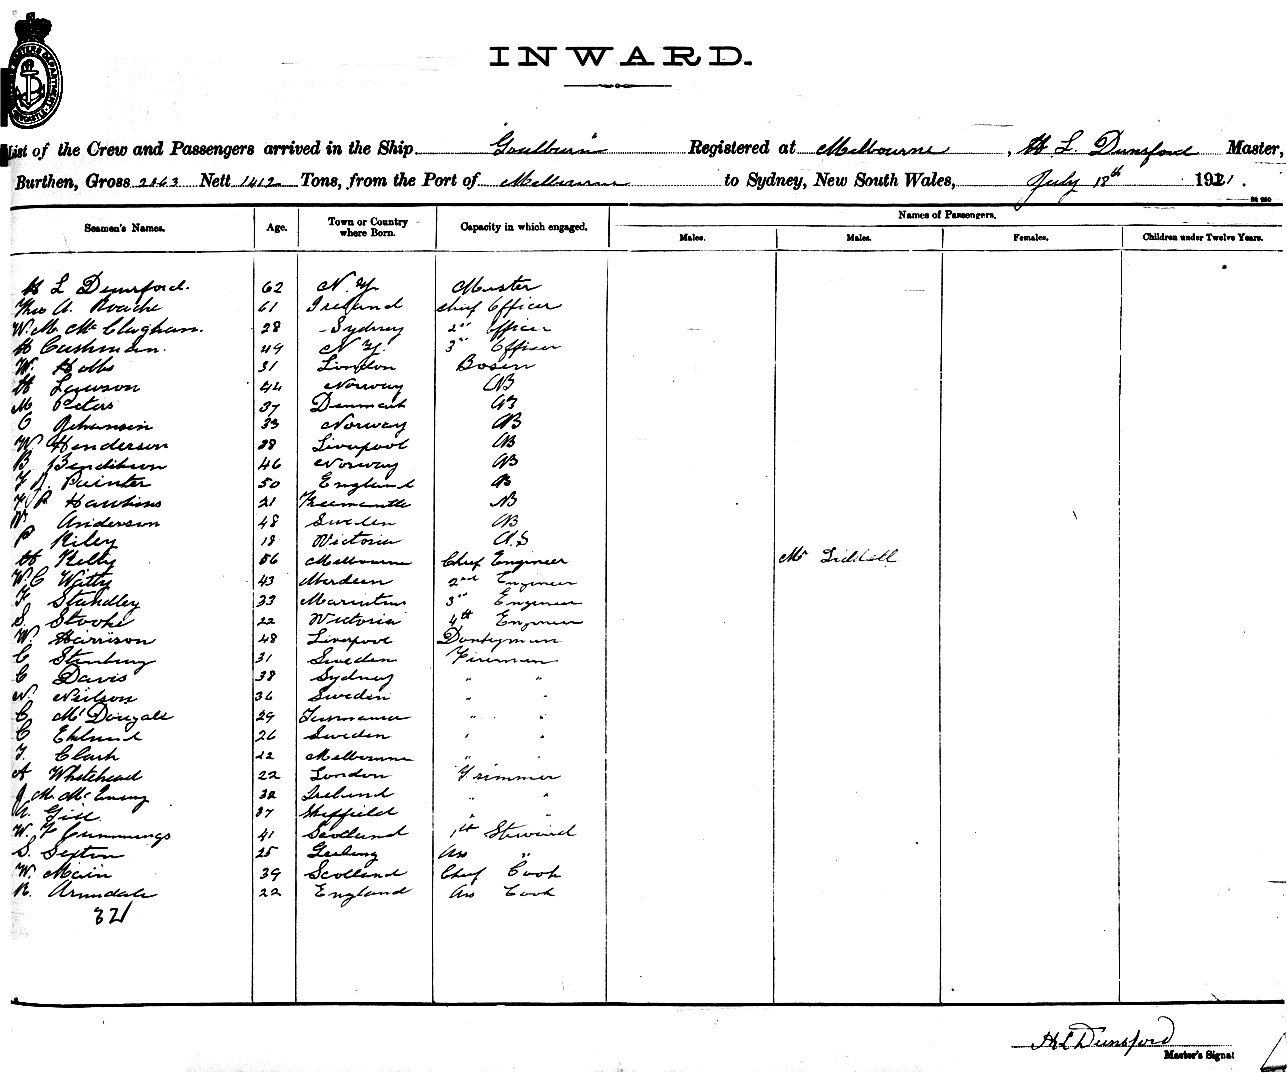 INWARD.
List of the Crew and Passengers arrived in the Ship Goulburn Registered at Melbourne, H L Dunsford Master,
Burthen, Gross 2863 Nett 1412 Tons, from the Port of Melbourne to Sydney, New South Wales, July 18th 1921.
Seamen's Names. Age. Town or Country where Born. Capacity in which engaged. Names of Passengers.
Males. Males. Females. Children under Twelve Years.
H L Dunsford. 62 N. Z. Master
Thos A. Roache 61 Ireland Chief Officer
W. M. Mc Claghan. 28 Sydney 2nd Officer
H Cushman. 49 N Z. 3rd Officer
W. Hobbs 31 London Bosen
H Lawson 44 Norway AB
M Peters 37 Denmark AB
O Johansin 33 Norway AB
W Henderson 28 Liverpool AB
B Bendikson 46 Norway AB
F J. Painter 50 England AB
F P Hawkins 21 Freemantle AB
W. Anderson 48 Sweden AB
P Riley 18 Victoria O.S
H Kelly 56 Melbourne Chief Engineer Mr Liddell
W. C Watty 43 Aberdeen 2nd Engineer
F Standley 33 Mauritius 3rd Engineer
S. Stooke 22 Victoria 4th Engineer
W. Harrison 48 Liverpool Donkeyman
C Stenburg 31 Sweden Fireman
C Davis 38 Sydney " "
N. Neilson 36 Sweden " "
C McDougall 29 Tasmania " "
C Eklund 26 Sweden " "
F. Clark 22 Melbourne " "
A Whitehead 22 London Trimmer
J M. McEneny 32 Ireland " "
A. Gill 37 Sheffield " "
W. F Cummings 41 Scotland 1st Steward
S. Sexton 25 Geelong Ass "
W. Main 39 Scotland Chief Cook
R. Arundale 22 England Ass Cook
32
H L Dunsford
Master's Signat